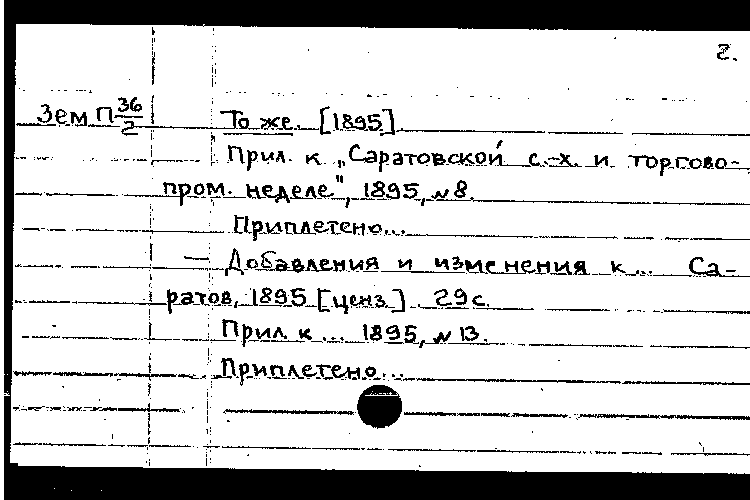 2.
Зем П 36/2 То же. [1895]
Прил. к „Саратовской с.-х. и торгово-
пром. неделе", 1895, №8.
Приплетено...
— Добавления и изменения к... Са-
ратов, 1895 [ценз]. 29с.
Прил. к ... 1895, №13.
Приплетено...